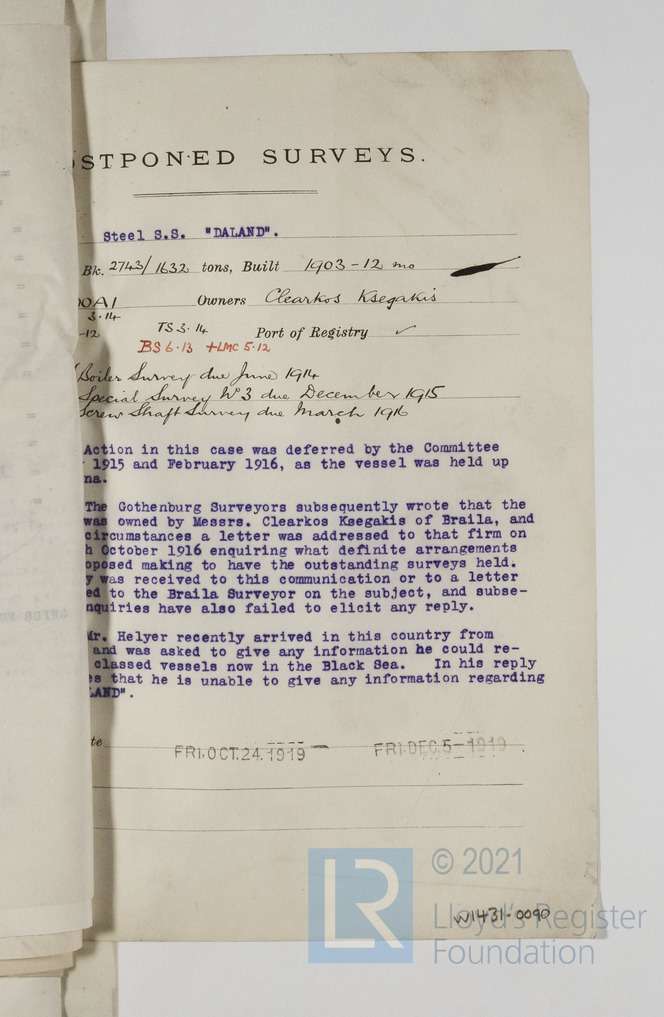 STPONED SURVEYS.
Steel S.S. "DALAND".
Bk. 2743/1632 tons, Built 1903-12 mo
OA1 Owners Clearkos Ksegakis
3.14
-12 TS 3.14 Port of Registry ✓
BS 6.13 +LMC 5.12
Boiler Survey due June 1914
Special Survey No 3 due December 1915
Screw Shaft Survey due March 1916
Action in this case was deferred by the Committee
1915 and February 1916, as the vessel was held up
na.
The Gothenburg Surveyors subsequently wrote that the
was owned by Messrs. Clearkos Ksegakis of Braila, and
circumstances a letter was addressed to that firm on
h October 1916 enquiring what definite arrangements
oposed making to have the outstanding surveys held.
y was received to this communication or to a letter
ed to the Braila Surveyor on the subject, and subse-
nquiries have also failed to elicit any reply.
Mr. Helyer recently arrived in this country from
and was asked to give any information he could re-
classed vessels now in the Black Sea. In his reply
es that he is unable to give any information regarding
LAND".
te FRI.OCT.24.1919 — FRI.DEC.5-1919
© 2021
W1431-0090
LR Lloyd's Register
Foundation